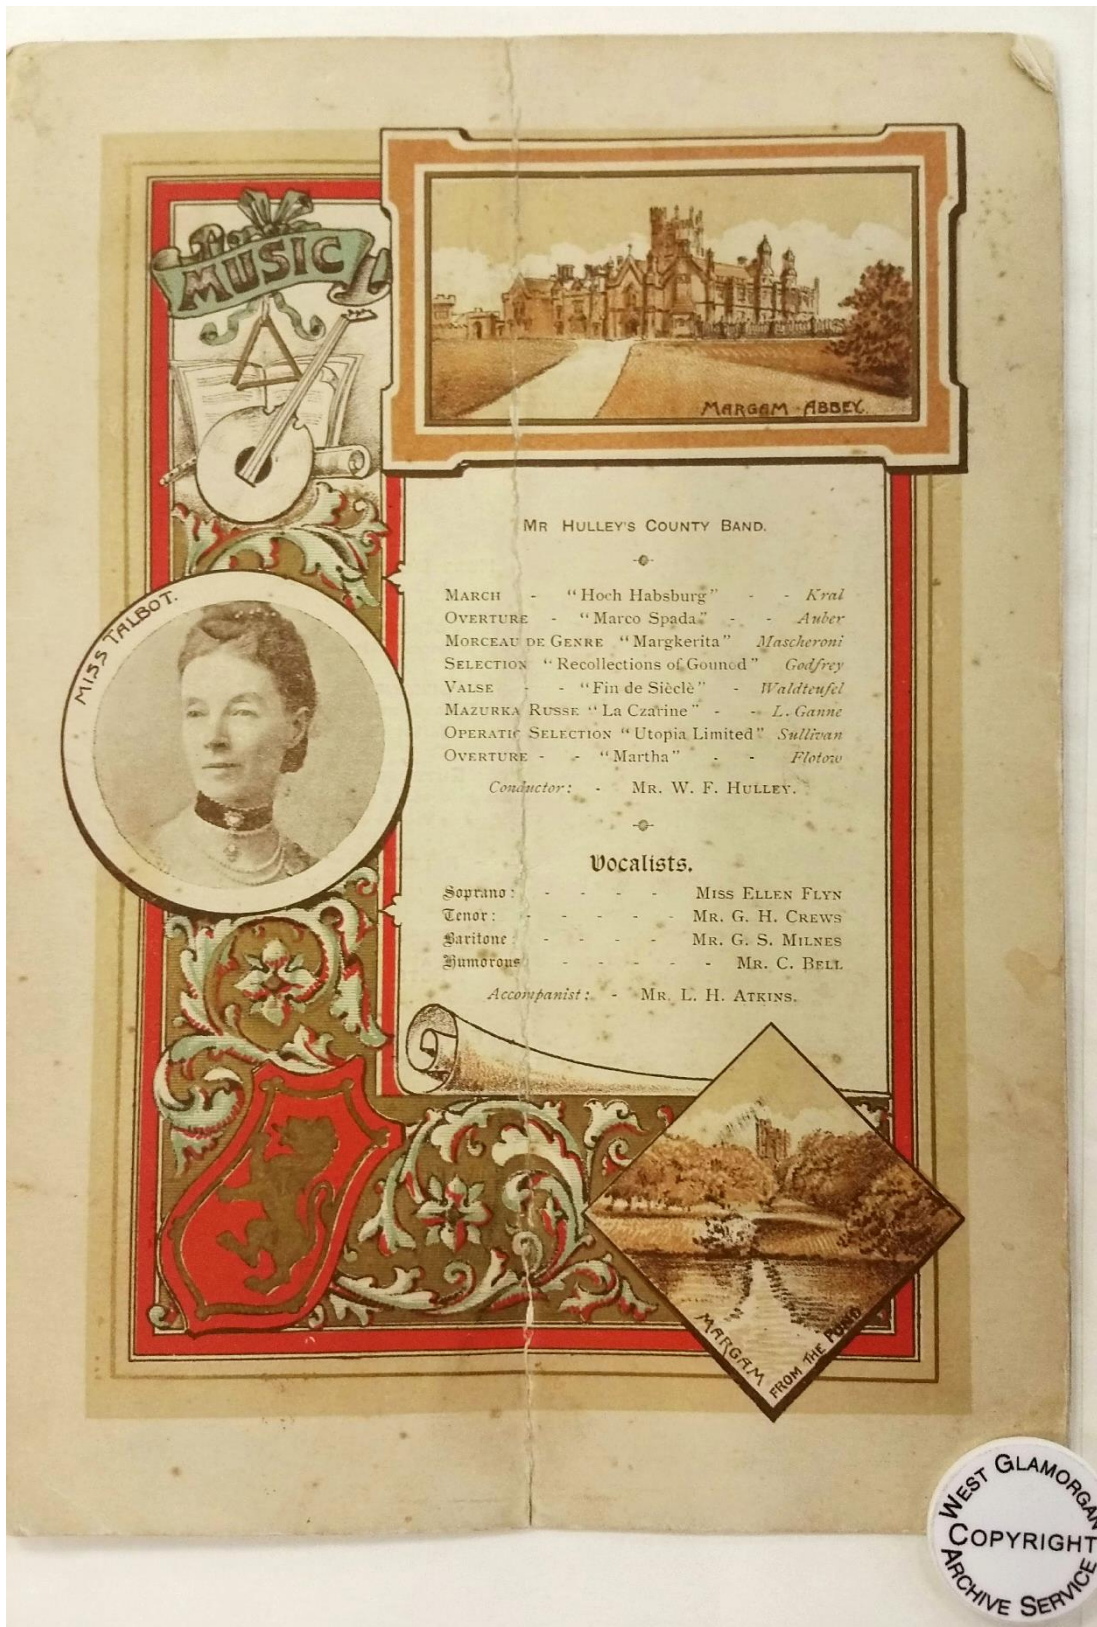 MUSIC
MARGAM ABBEY.
MR HULLEY'S COUNTY BAND.
MISS TALBOT.
MARCH - "Hoch Habsburg" - - Kral
OVERTURE - "Marco Spada" - - Auber
MORCEAU DE GENRE "Margkerita" Mascheroni
SELECTION "Recollections of Gounod" Godfrey
VALSE - - "Fin de Sièclè" - Waldteufel
MAZURKA RUSSE "La Czarine" - - L. Ganne
OPERATIC SELECTION "Utopia Limited" Sullivan
OVERTURE - - "Martha" - - Flotow
Conductor: - MR. W. F. HULLEY.
Vocalists.
Soprano: - - - - MISS ELLEN FLYN
Tenor: - - - - - MR. G. H. CREWS
Baritone: - - - - MR. G. S. MILNES
Humorous - - - - - MR. C. BELL
Accompanist: - MR. L. H. ATKINS.
MARGAM
FROM THE POND
WEST GLAMORGAN
COPYRIGHT
ARCHIVE SERVICE